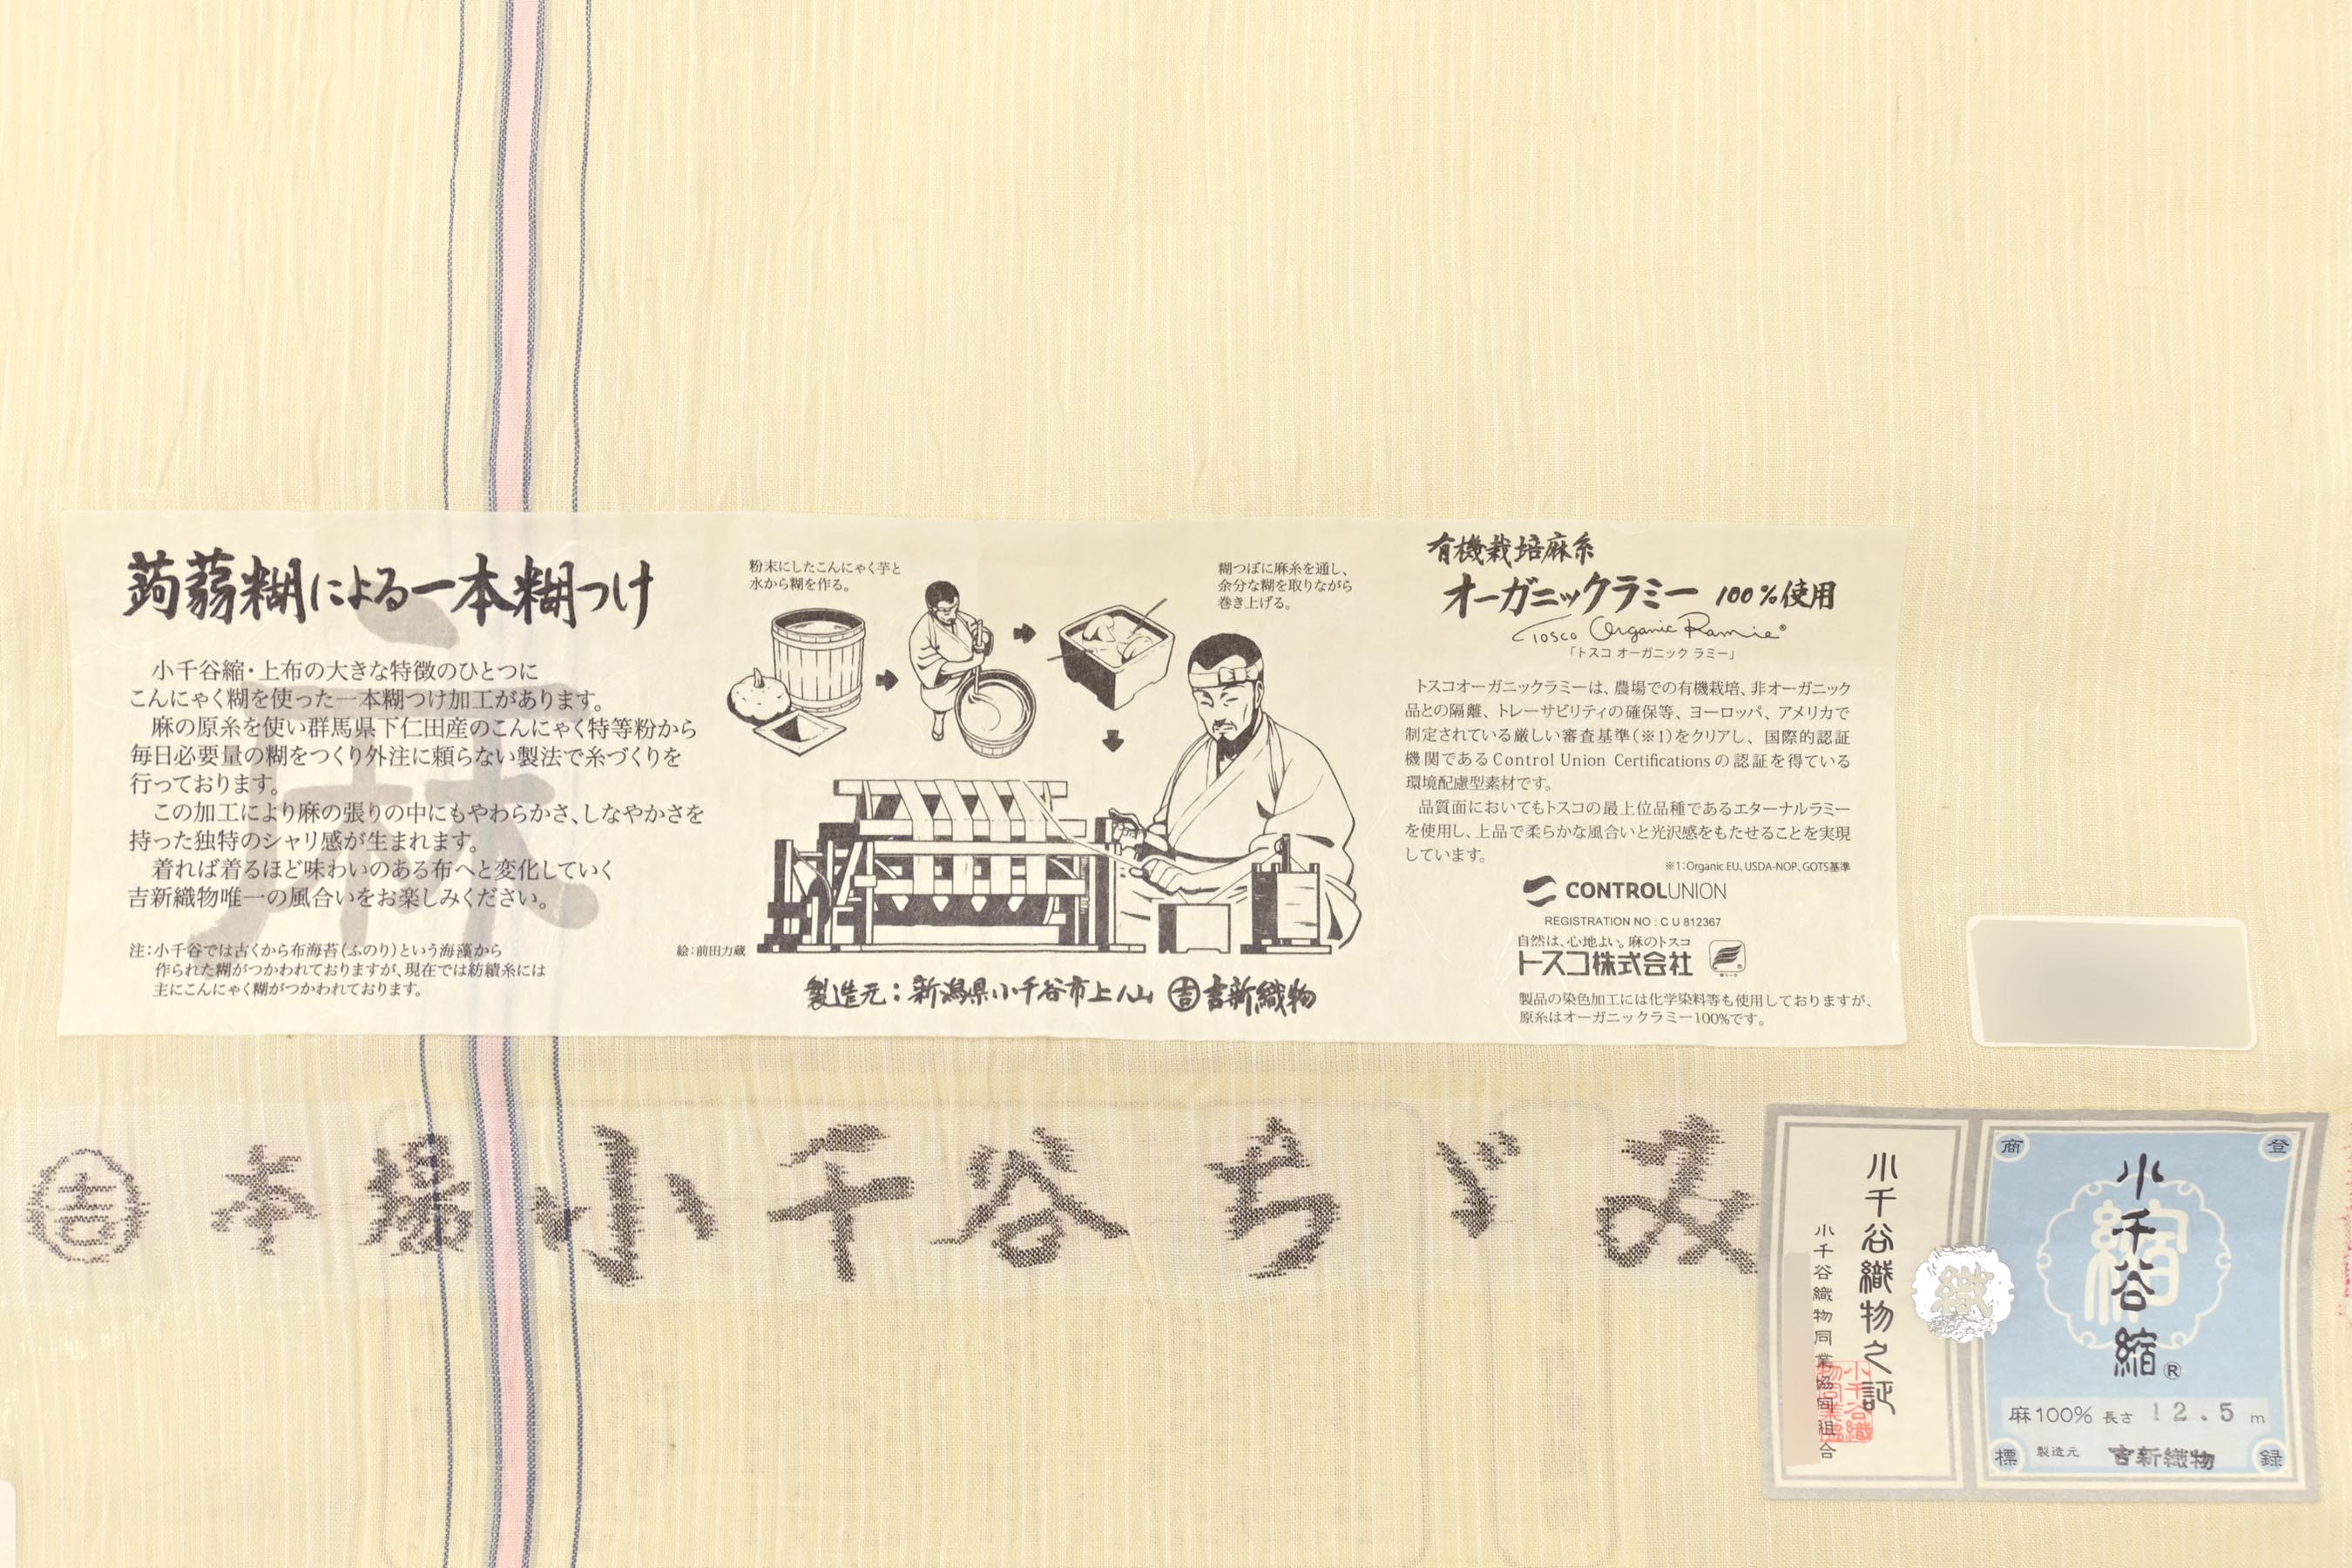 蒟蒻糊による一本糊つけ
小千谷縮・上布の大きな特徴のひとつに
こんにゃく糊を使った一本糊つけ加工があります。
麻の原糸を使い群馬県下仁田産のこんにゃく特等粉から
毎日必要量の糊をつくり外注に頼らない製法で糸づくりを
行っております。
この加工により麻の張りの中にもやわらかさ、しなやかさを
持った独特のシャリ感が生まれます。
着れば着るほど味わいのある布へと変化していく
吉新織物唯一の風合いをお楽しみください。
注：小千谷では古くから布海苔（ふのり）という海藻から
作られた糊がつかわれておりますが、現在では紡績糸には
主にこんにゃく糊がつかわれております。
麻
粉末にしたこんにゃく芋と
水から糊を作る。
糊つぼに麻糸を通し、
余分な糊を取りながら
巻き上げる。
絵：前田力蔵
製造元：新潟県小千谷市上ノ山 吉 吉新織物
有機栽培麻糸
オーガニックラミー 100%使用
Tosco Organic Ramie®
「トスコ オーガニック ラミー」
トスコオーガニックラミーは、農場での有機栽培、非オーガニック
品との隔離、トレーサビリティの確保等、ヨーロッパ、アメリカで
制定されている厳しい審査基準（※1）をクリアし、国際的認証
機関であるControl Union Certificationsの認証を得ている
環境配慮型素材です。
品質面においてもトスコの最上位品種であるエターナルラミー
を使用し、上品で柔らかな風合いと光沢感をもたせることを実現
しています。
※1：Organic EU、USDA-NOP、GOTS基準
CONTROLUNION
REGISTRATION NO : C U 812367
自然は、心地よい。麻のトスコ
トスコ株式会社
製品の染色加工には化学染料等も使用しておりますが、
原糸はオーガニックラミー100%です。
吉 本場小千谷ちぢみ
小千谷織物之証
小千谷織物同業協同組合
織
商 登
標 録
縮
小千谷縮®
麻100% 長さ 12.5 m
製造元 吉新織物